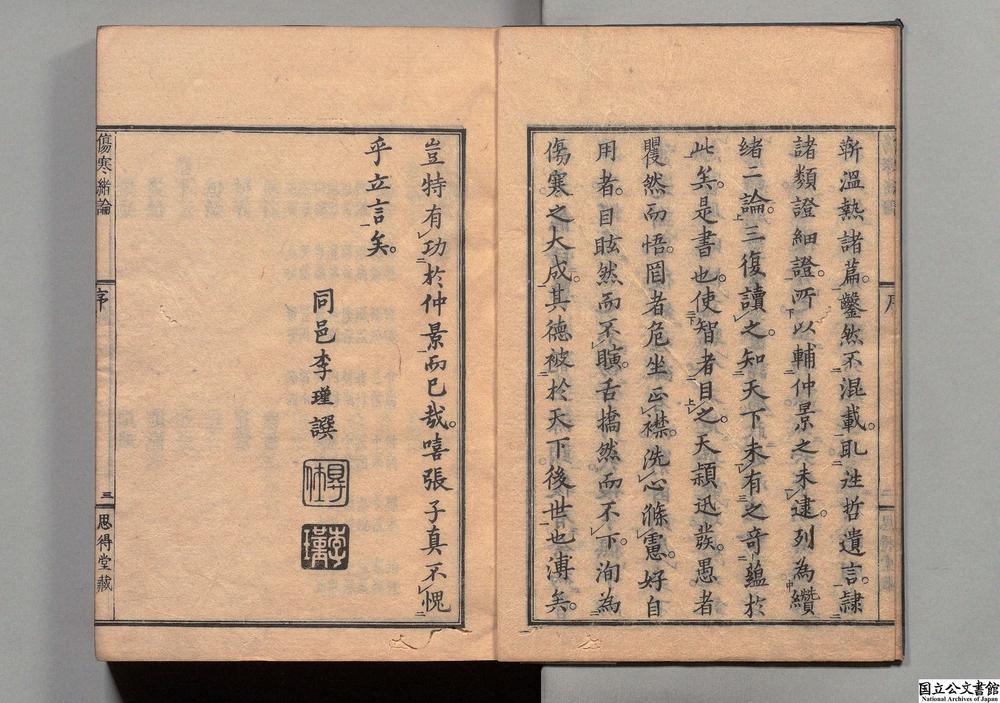 斬溫熱諸篇。鑿然不混載。耴徃哲遺言。隷
諸類證細證。所以輔仲景之未逮。列為纘
緒二論。三復讀之。知天下未有之奇蘊於
此矣。是書也。使智者目之。天頴迅發。愚者
矍然而悟。罔者危坐正襟。洗心滌慮。好自
用者。目眩然而不瞚。舌撟然而不下。洵為
傷寒之大成。其德被於天下後世也溥矣。
豈特有功於仲景而已哉。嘻張子真不愧
乎立言矣。
同邑李瑾譔
李瑾
傷寒緒論
序
三
思得堂藏
国立公文書館
National Archives of Japan